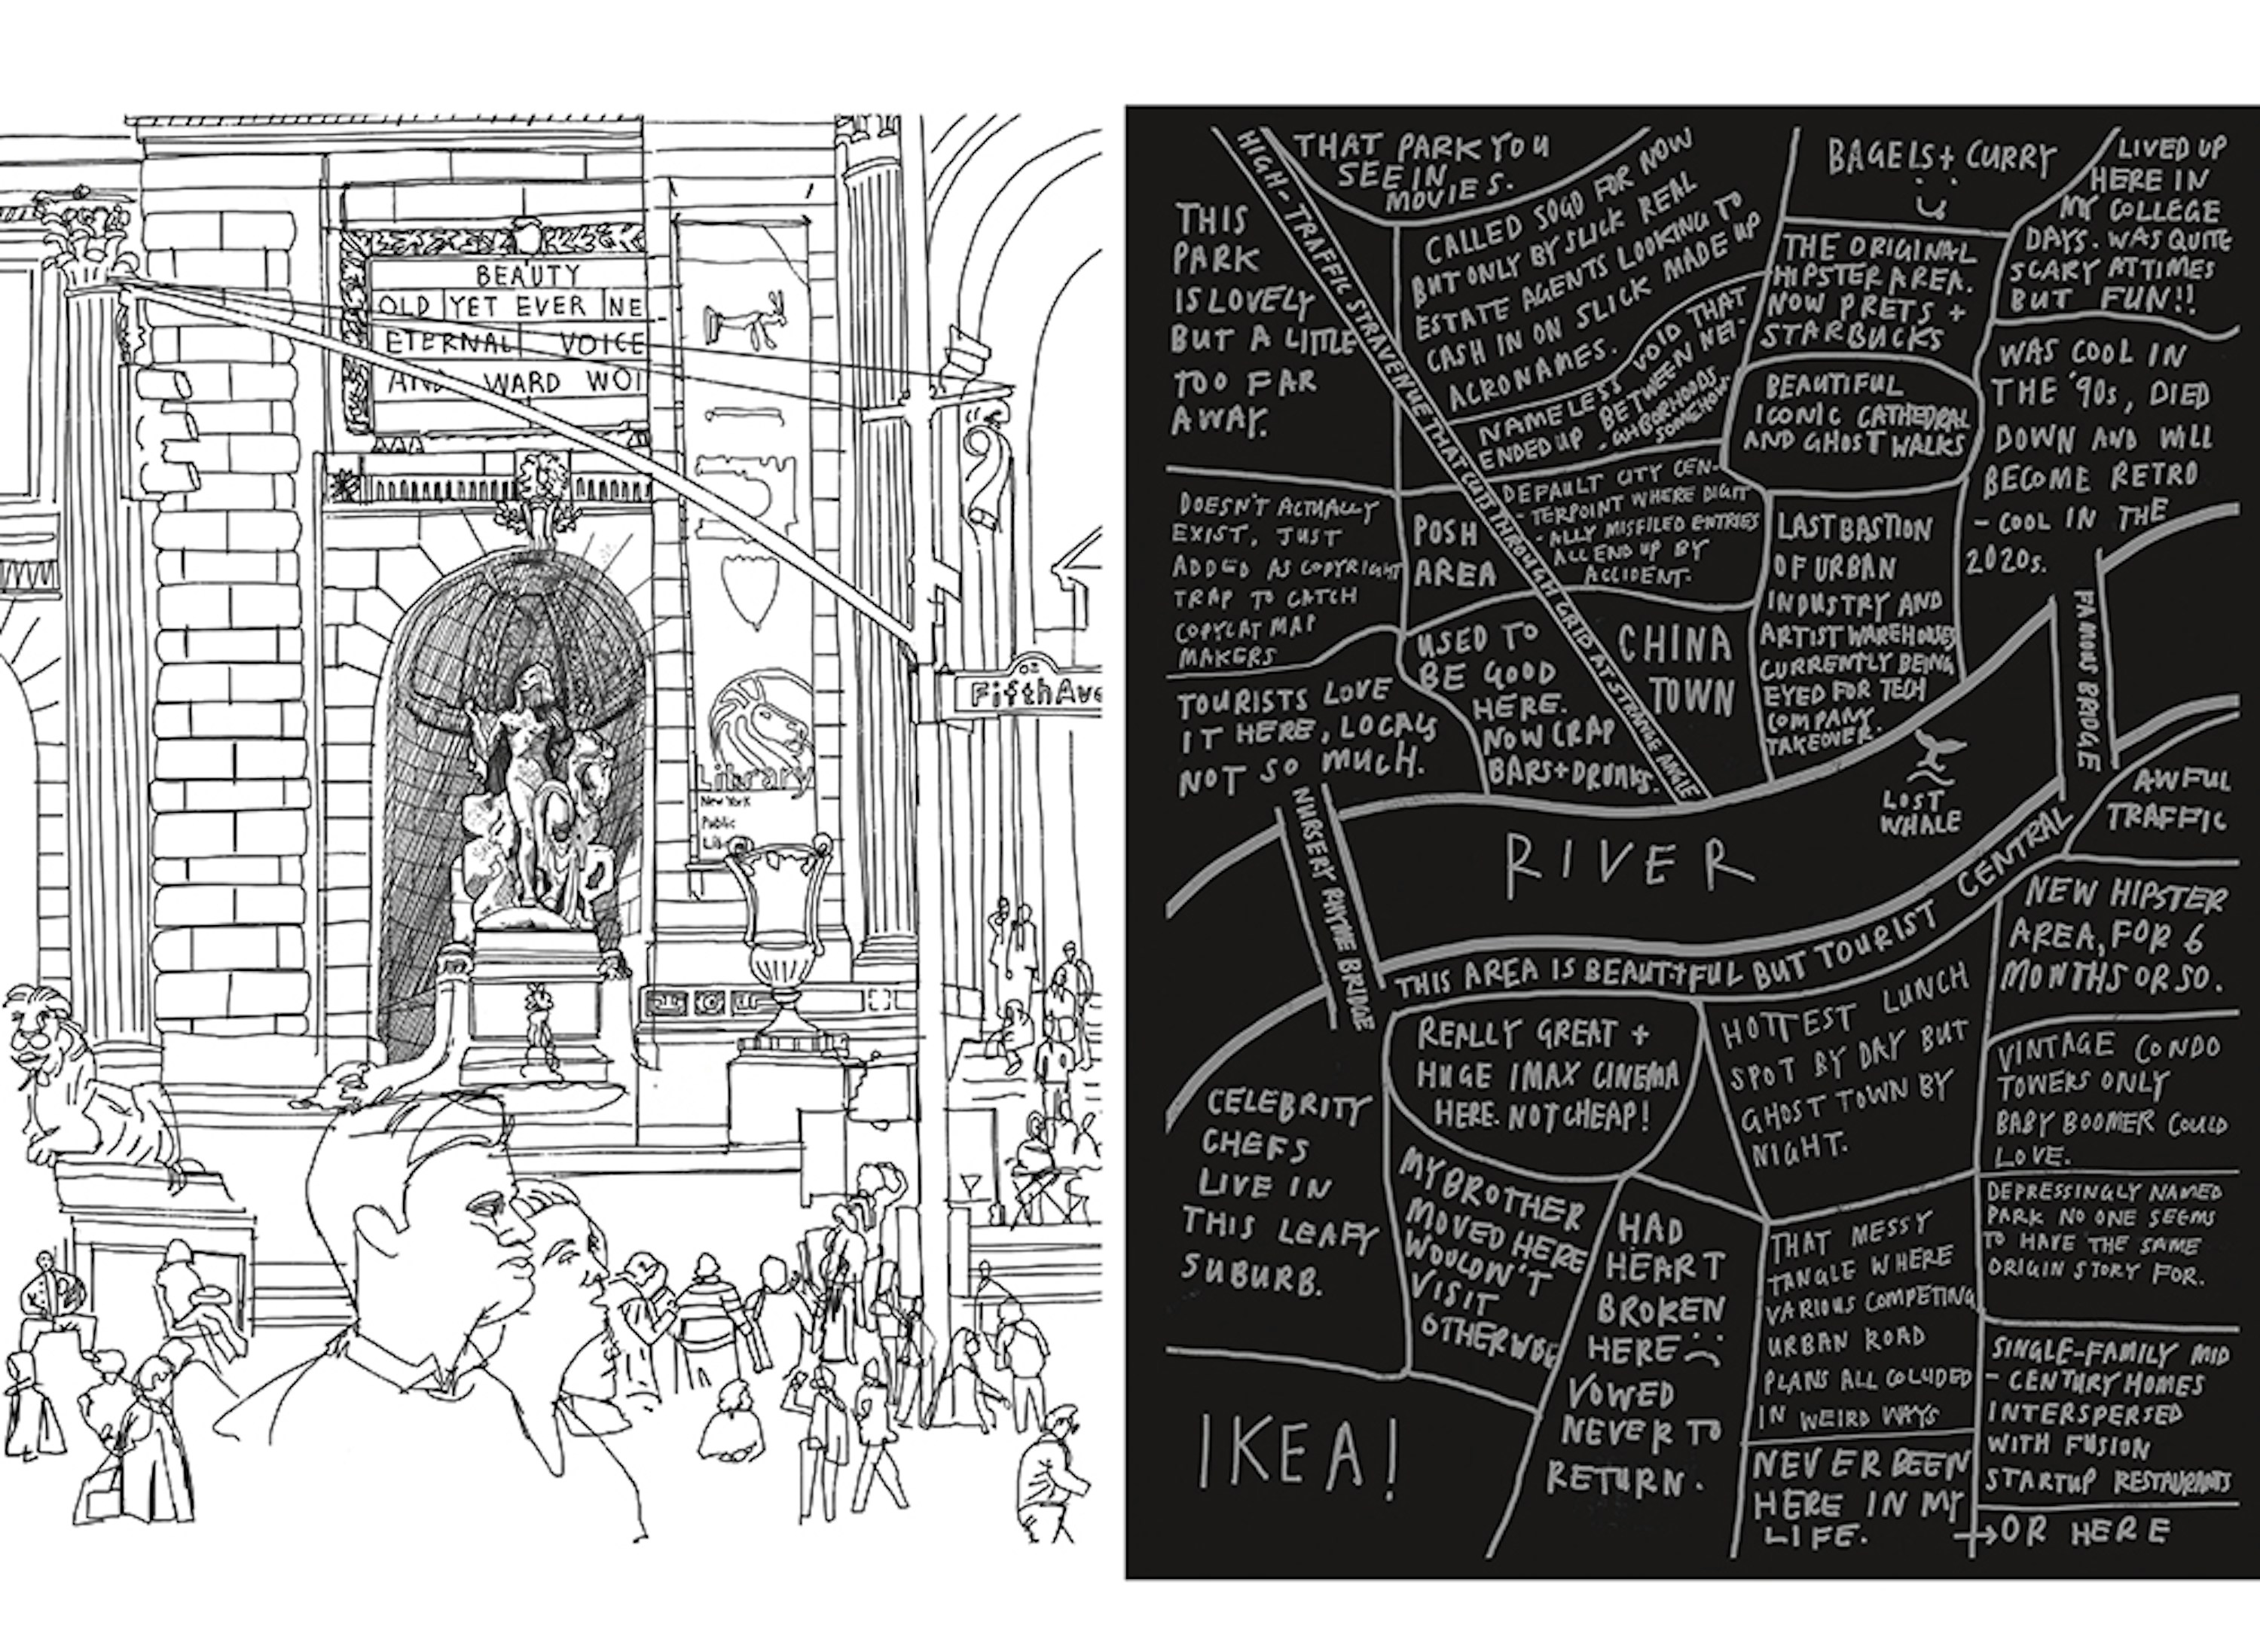 BEAUTY
OLD YET EVER NE
ETERNAL VOICE
AND WARD WOI
Fifth Ave
Library
New York
Public
Lib
HIGH-TRAFFIC STRAVENUE THAT CUTS THROUGH GRID AT STRANGE ANGLE
THAT PARK YOU
SEE IN
MOVIES.
THIS
PARK
IS LOVELY
BUT A LITTLE
TOO FAR
AWAY.
CALLED SOGO FOR NOW
BUT ONLY BY SLICK REAL
ESTATE AGENTS LOOKING TO
CASH IN ON SLICK MADE UP
ACRONAMES.
NAMELESS VOID THAT
ENDED UP BETWEEN NEI-
-GHBORHOODS
SOMEHOW.
BAGELS + CURRY
THE ORIGINAL
HIPSTER AREA.
NOW PRETS +
STARBUCKS
LIVED UP
HERE IN
MY COLLEGE
DAYS. WAS QUITE
SCARY AT TIMES
BUT FUN!!
BEAUTIFUL
ICONIC CATHEDRAL
AND GHOST WALKS
WAS COOL IN
THE '90s, DIED
DOWN AND WILL
BECOME RETRO
- COOL IN THE
2020s.
DOESN'T ACTUALLY
EXIST, JUST
ADDED AS COPYRIGHT
TRAP TO CATCH
COPYCAT MAP
MAKERS
POSH
AREA
DEFAULT CITY CEN-
- TERPOINT WHERE DIGIT
- ALLY MISFILED ENTRIES
ALL END UP BY
ACCIDENT.
LAST BASTION
OF URBAN
INDUSTRY AND
ARTIST WAREHOUSES
CURRENTLY BEING
EYED FOR TECH
COMPANY
TAKEOVER.
USED TO
BE GOOD
HERE.
NOW CRAP
BARS + DRUNKS.
CHINA
TOWN
TOURISTS LOVE
IT HERE, LOCALS
NOT SO MUCH.
FAMOUS BRIDGE
LOST
WHALE
RIVER
NURSERY RHYME BRIDGE
AWFUL
TRAFFIC
THIS AREA IS BEAUTIFUL BUT TOURIST CENTRAL
NEW HIPSTER
AREA, FOR 6
MONTHS OR SO.
REALLY GREAT +
HUGE IMAX CINEMA
HERE. NOT CHEAP!
HOTTEST LUNCH
SPOT BY DAY BUT
GHOST TOWN BY
NIGHT.
VINTAGE CONDO
TOWERS ONLY
BABY BOOMER COULD
LOVE.
CELEBRITY
CHEFS
LIVE IN
THIS LEAFY
SUBURB.
MY BROTHER
MOVED HERE
WOULDN'T
VISIT
OTHERWISE
HAD
HEART
BROKEN
HERE
VOWED
NEVER TO
RETURN.
THAT MESSY
TANGLE WHERE
VARIOUS COMPETING
URBAN ROAD
PLANS ALL COLLIDED
IN WEIRD WAYS
DEPRESSINGLY NAMED
PARK NO ONE SEEMS
TO HAVE THE SAME
ORIGIN STORY FOR.
SINGLE-FAMILY MID
- CENTURY HOMES
INTERSPERSED
WITH FUSION
STARTUP RESTAURANTS
IKEA!
NEVER BEEN
HERE IN MY
LIFE.
→OR HERE